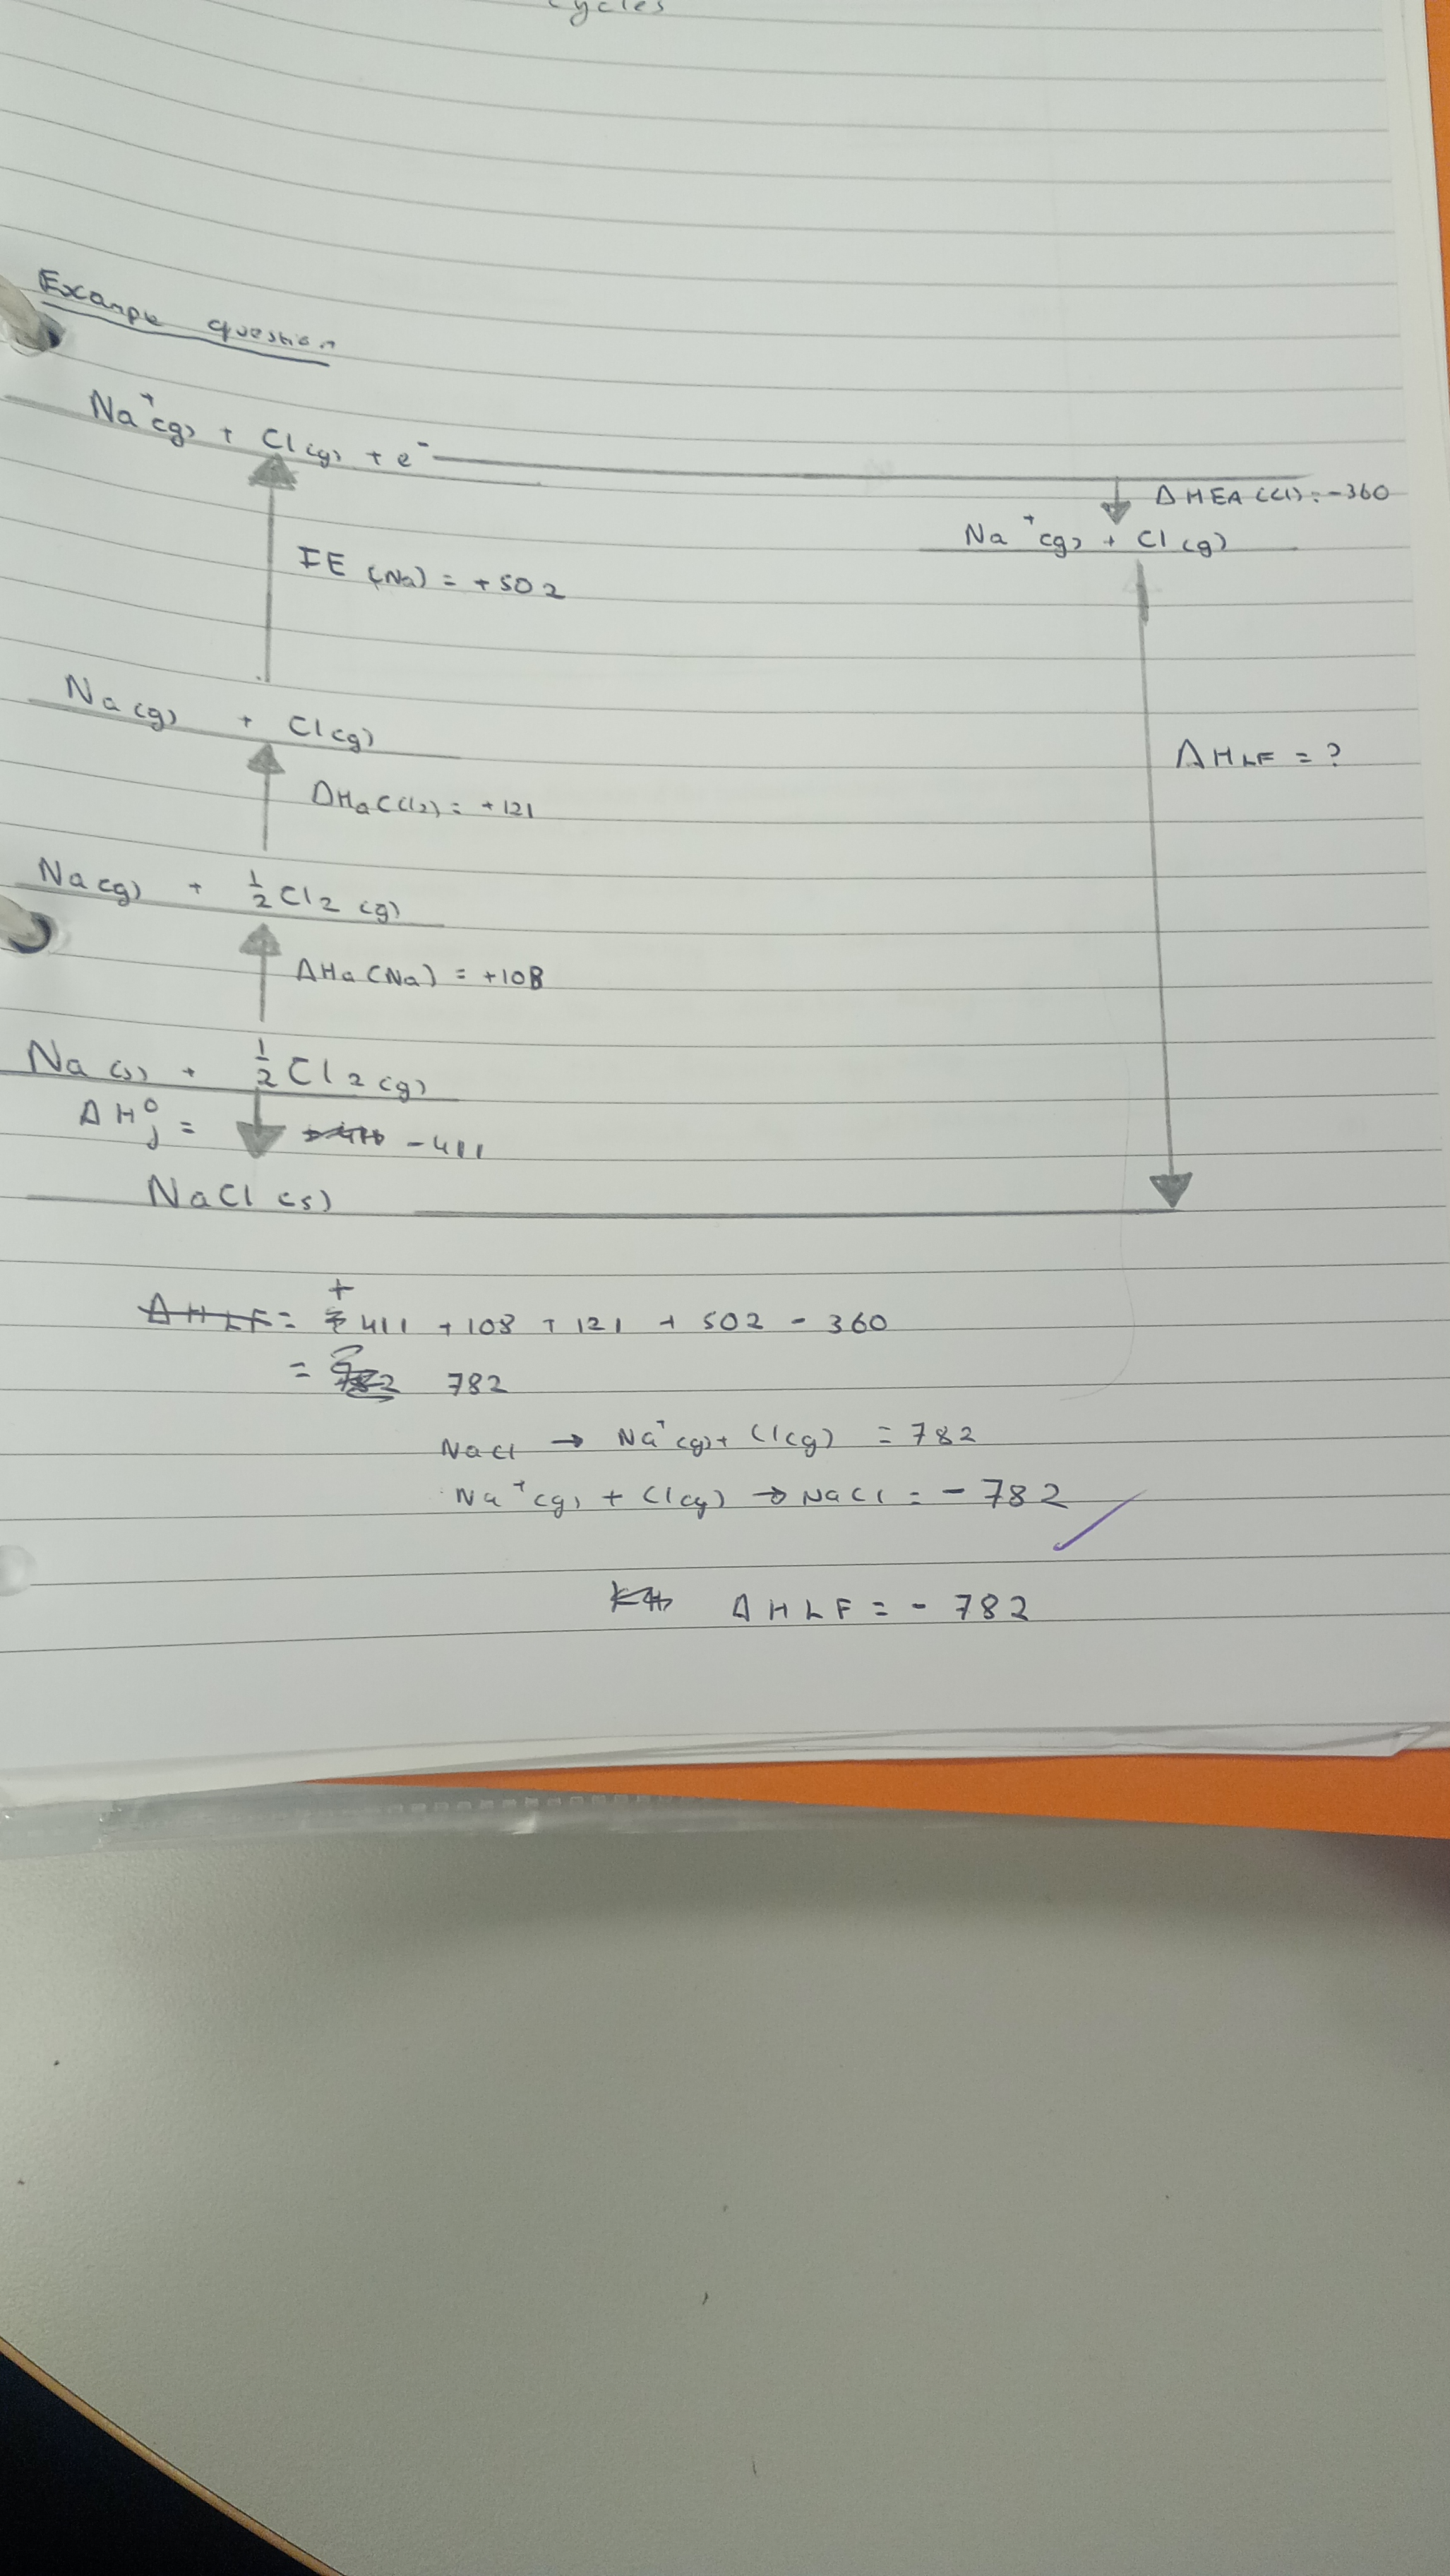 ycles
Example question
Na⁺(g) + Cl(g) + e⁻
ΔHEA (Cl) = -360
Na⁺(g) + Cl(g)
IE (Na) = +502
Na(g) + Cl(g)
ΔHLF = ?
ΔHa(Cl2) = +121
Na(g) + ½Cl2(g)
ΔHa(Na) = +108
Na(s) + ½Cl2(g)
ΔH°f = -411
NaCl(s)
ΔHLF = +411 +108 +121 +502 - 360
= 782
NaCl → Na⁺(g) + Cl(g) = 782
Na⁺(g) + Cl(g) → NaCl = -782
ΔHLF = -782